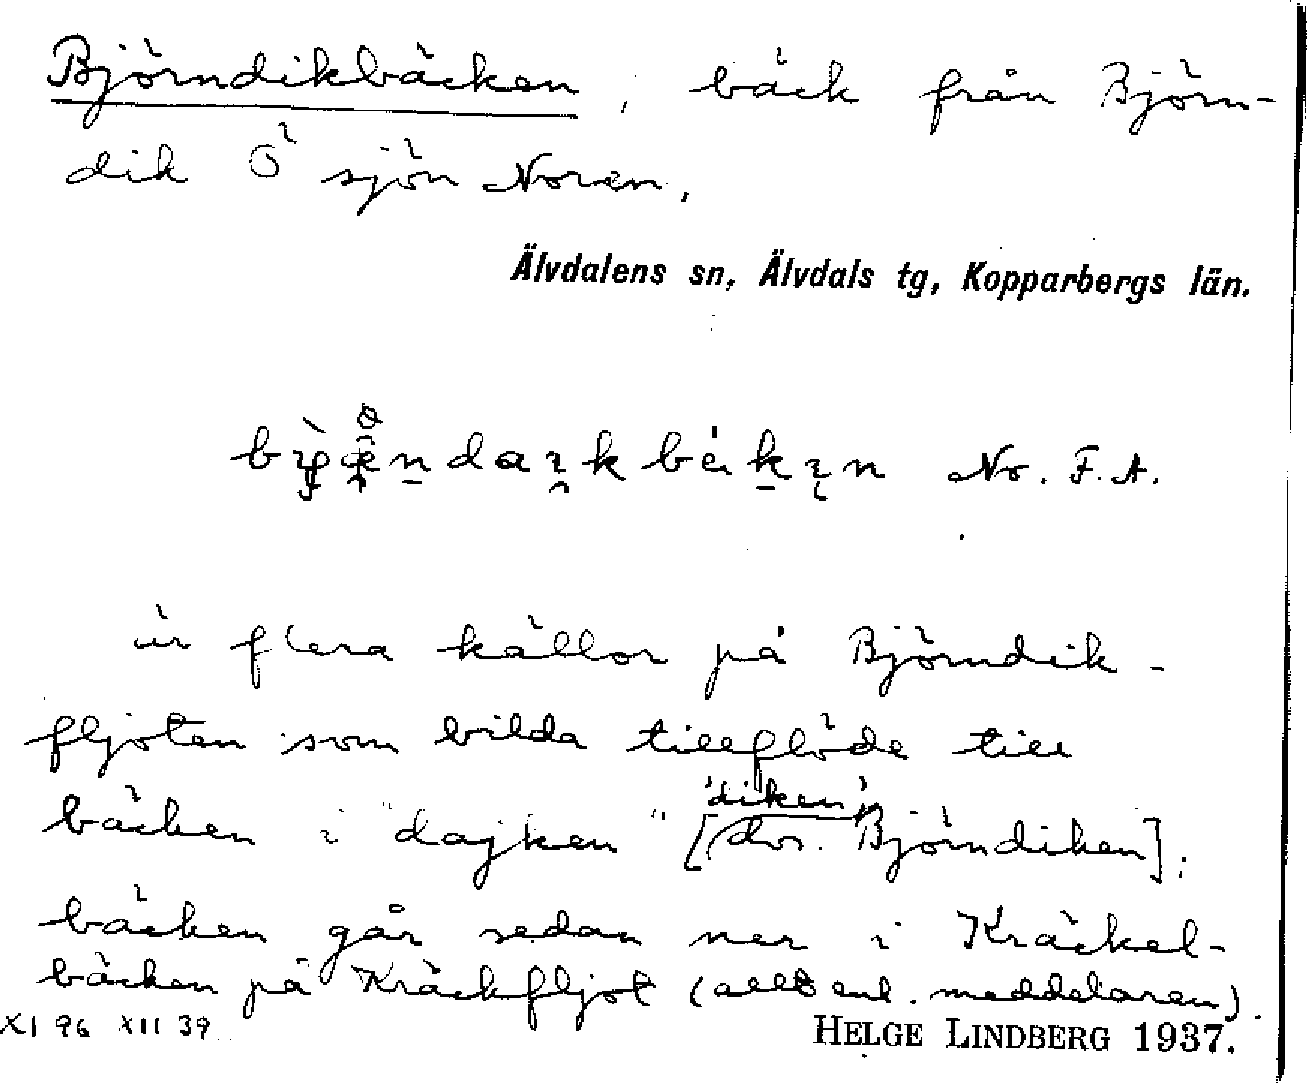 Björndikbäcken, bäck från Björn-
dik Ö sjön Noren.
Älvdalens sn, Älvdals tg, Kopparbergs län.
No. F. A.
är flera källor på Björndik-
fljoten som bilda tillflöde till
bäcken i "dajken" 'diken' [dvs. Björndiken];
bäcken går sedan ner i Kräckel-
bäcken på Kräckfljot (allt enl. meddelaren).
XI 96 XII 39
HELGE LINDBERG 1937.